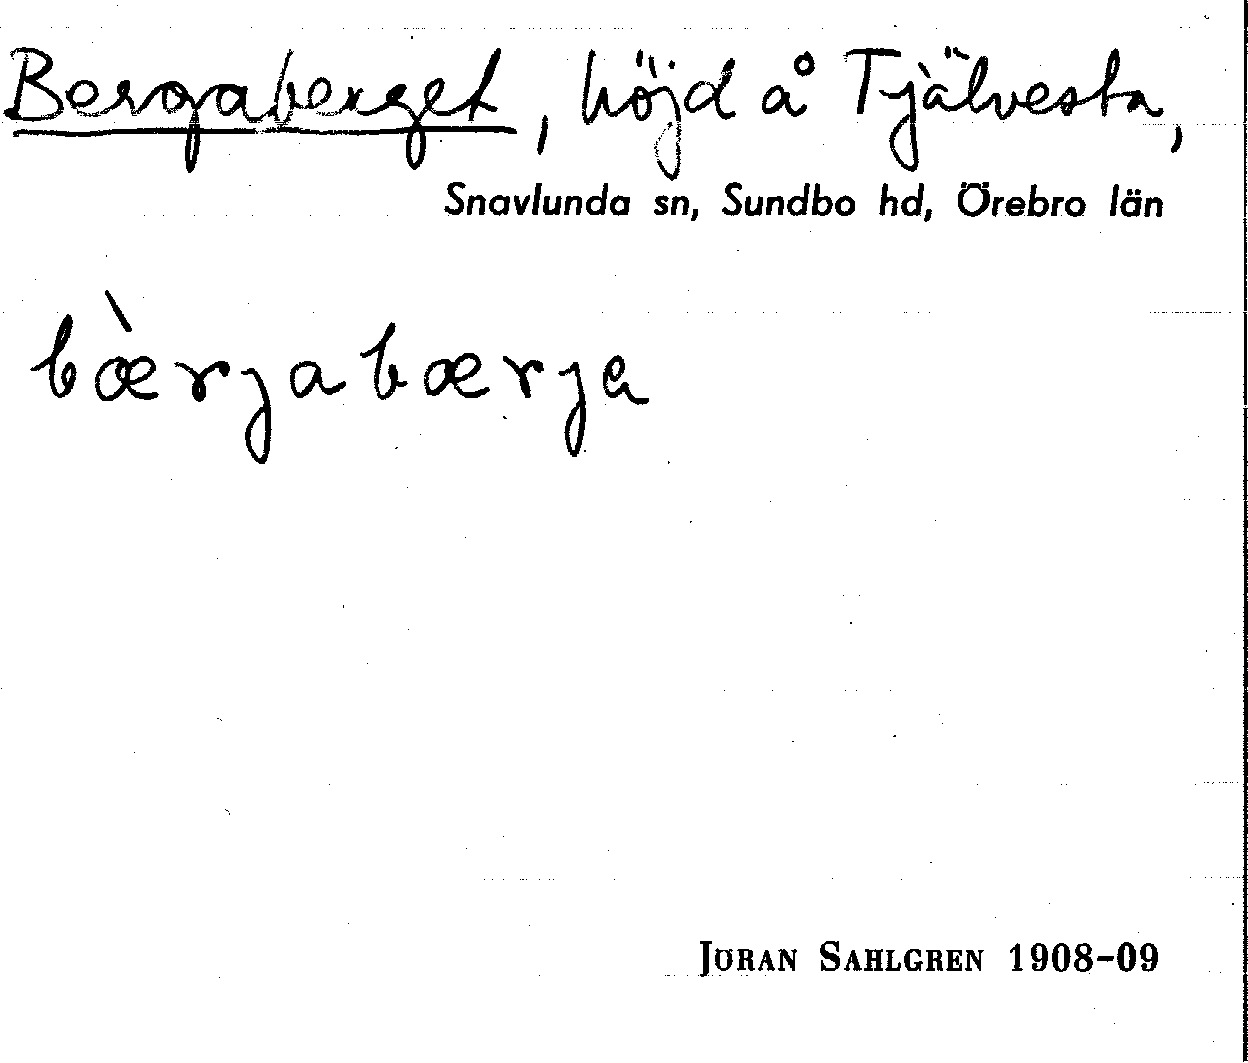 Bergaberget, höjd å Tjälvesta,
Snavlunda sn, Sundbo hd, Örebro län
bæ̀rjabærja
JÖRAN SAHLGREN 1908–09